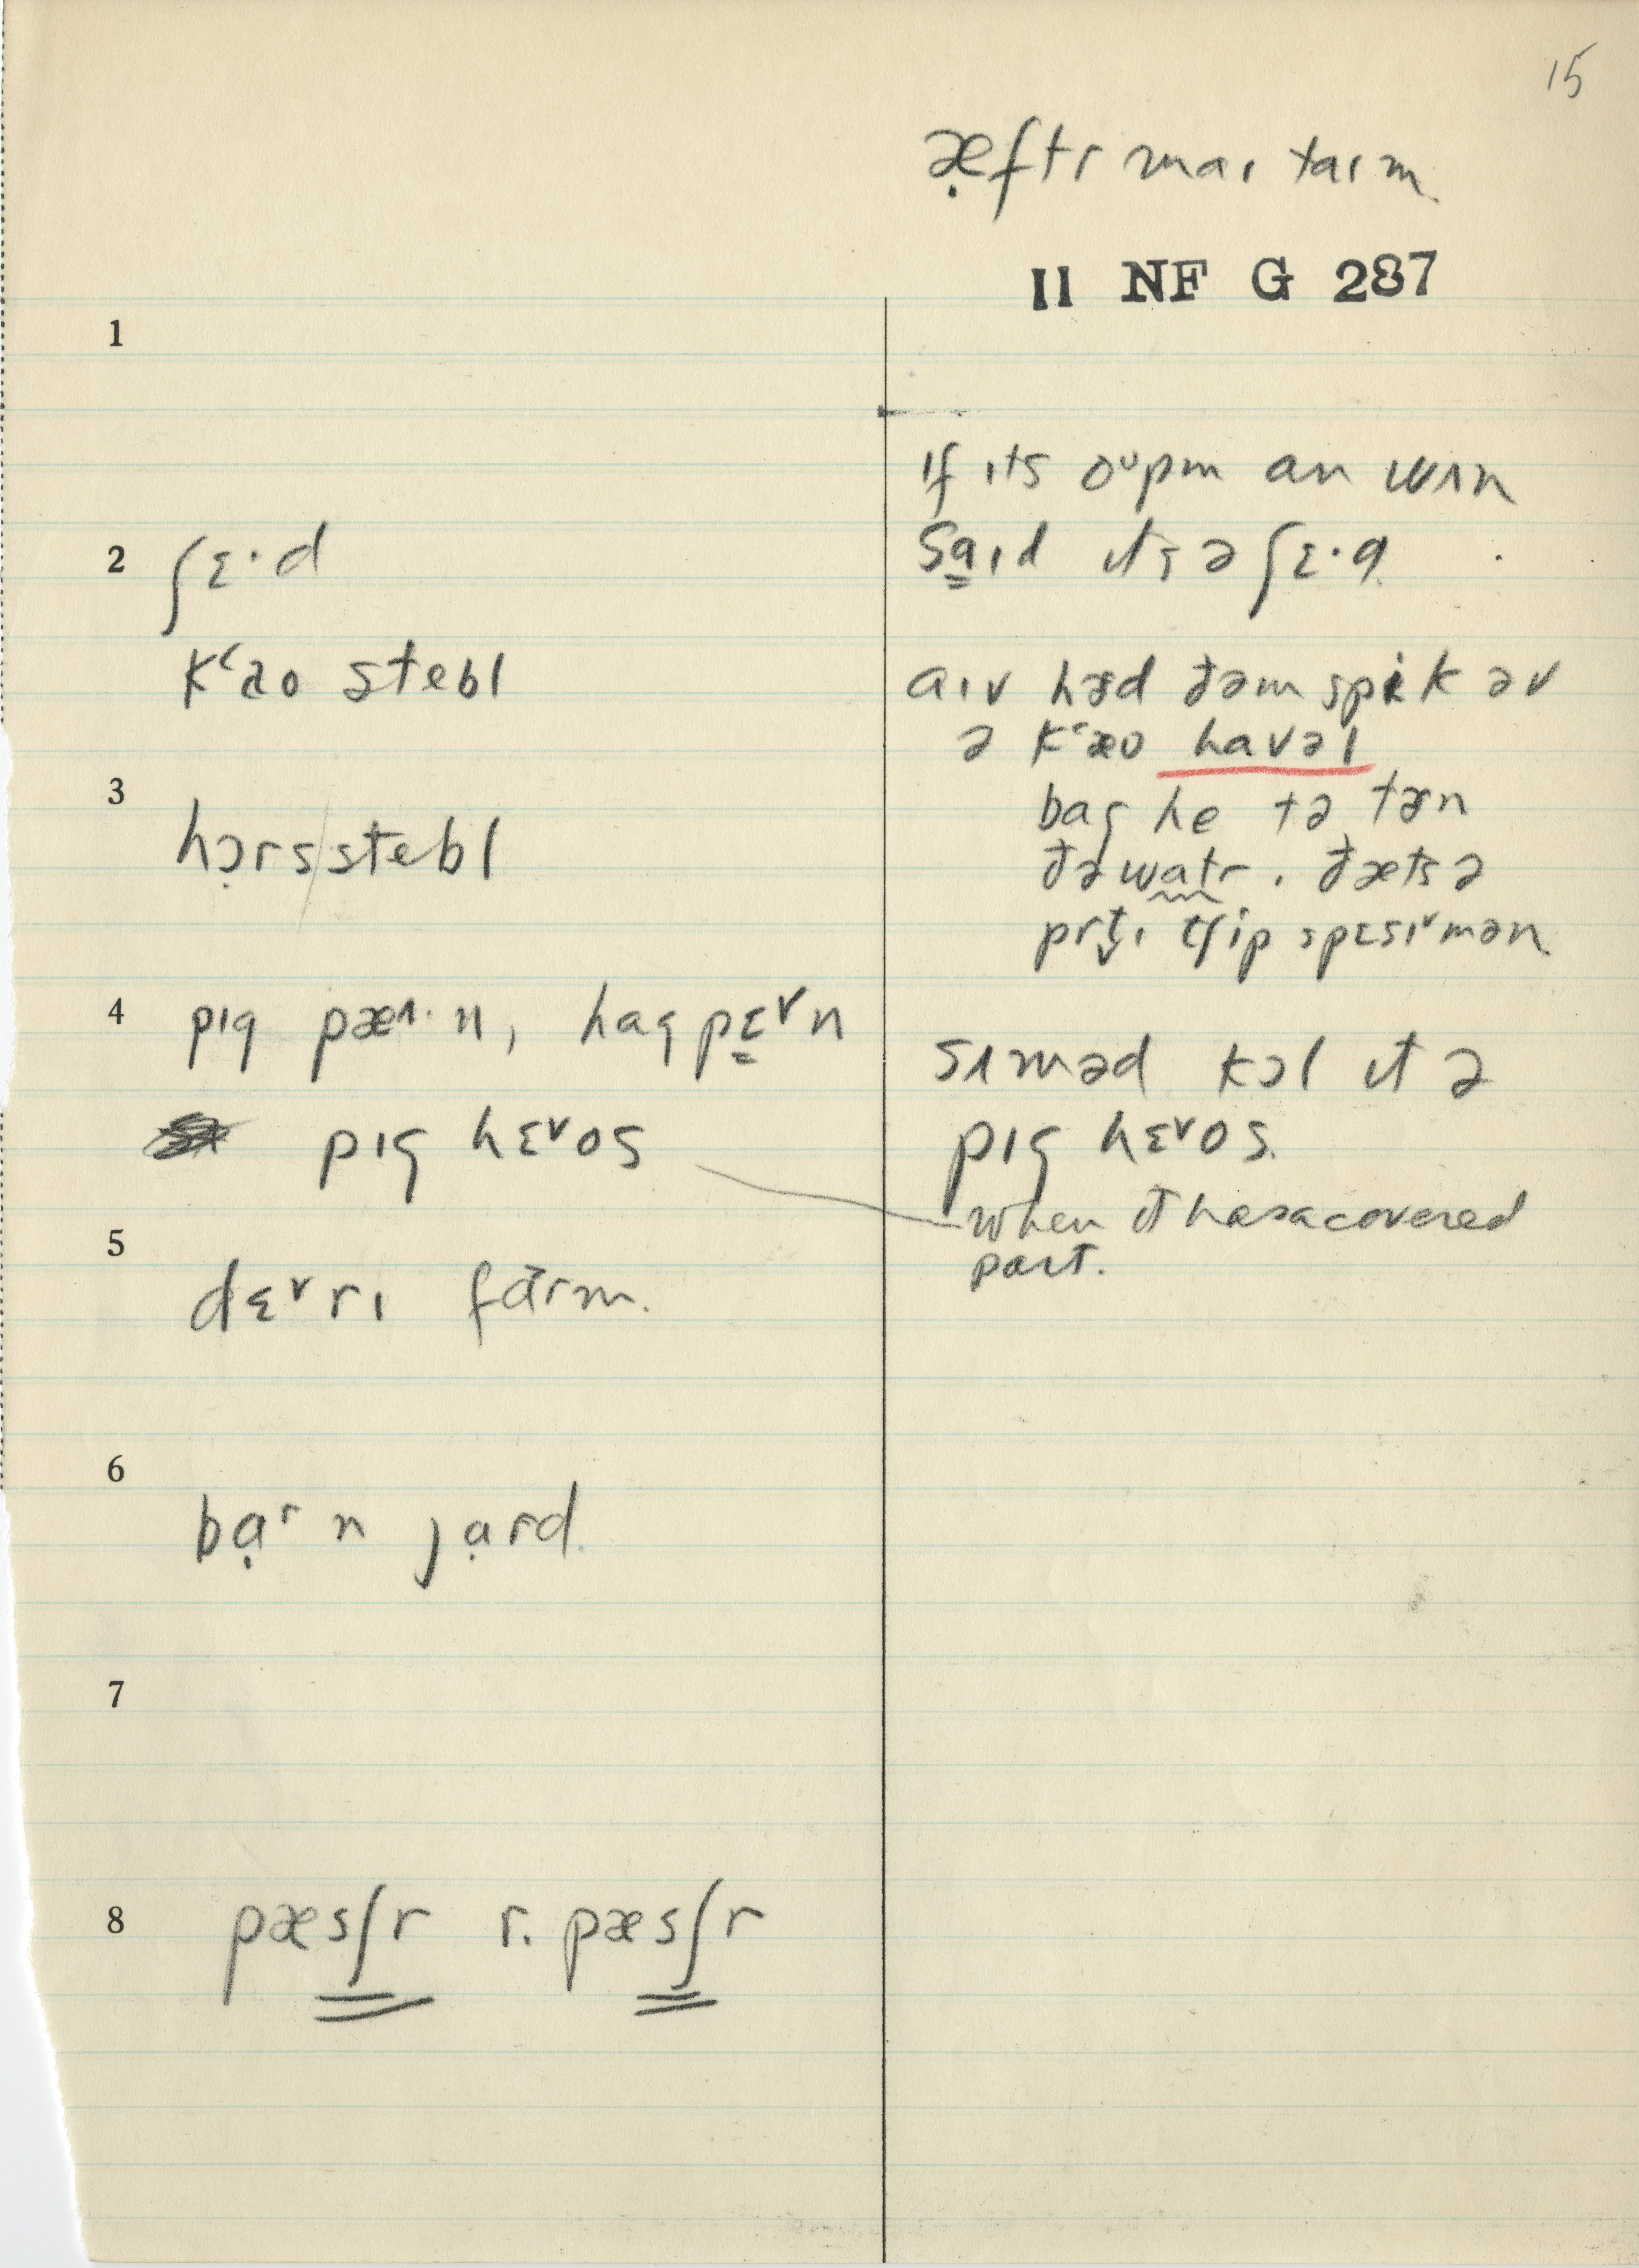 15
æ̣ftr maɪ taɪm
II NF G 287
1
ɪf ɪts oᵘpm an wʌn
2 ʃɛ·d
sa̳ɪd ɪts ə ʃɛ·d
kʻao stebl
aɪv hɜd ðəm spik əv
ə kʻæo havəl
3
baɪ he tə tɜn
hɔ̣rs/stebl
ðə watr. ðæts ə
prt̬ɪ tʃip spɛsɪ˅mən
4 pɪg pæʌ·n, hagpɛ̳˅n
sʌməd kɔl ɪt ə
pɪg hɛ˅os
pɪg hɛ˅os.
when it has a covered
part.
5
dɛ˅rɪ fārm.
6
bạʳn jạrd.
7
8 pæsʃr r. pæsʃr